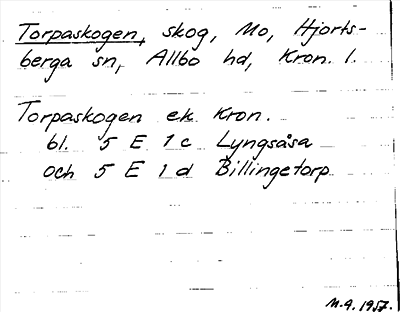 Torpaskogen, skog, Mo, Hjorts-
berga sn, Allbo hd, Kron. l.
Torpaskogen ek. Kron.
bl. 5 E 1 c Lyngsåsa
och 5 E 1 d Billingetorp
M.A. 1957.